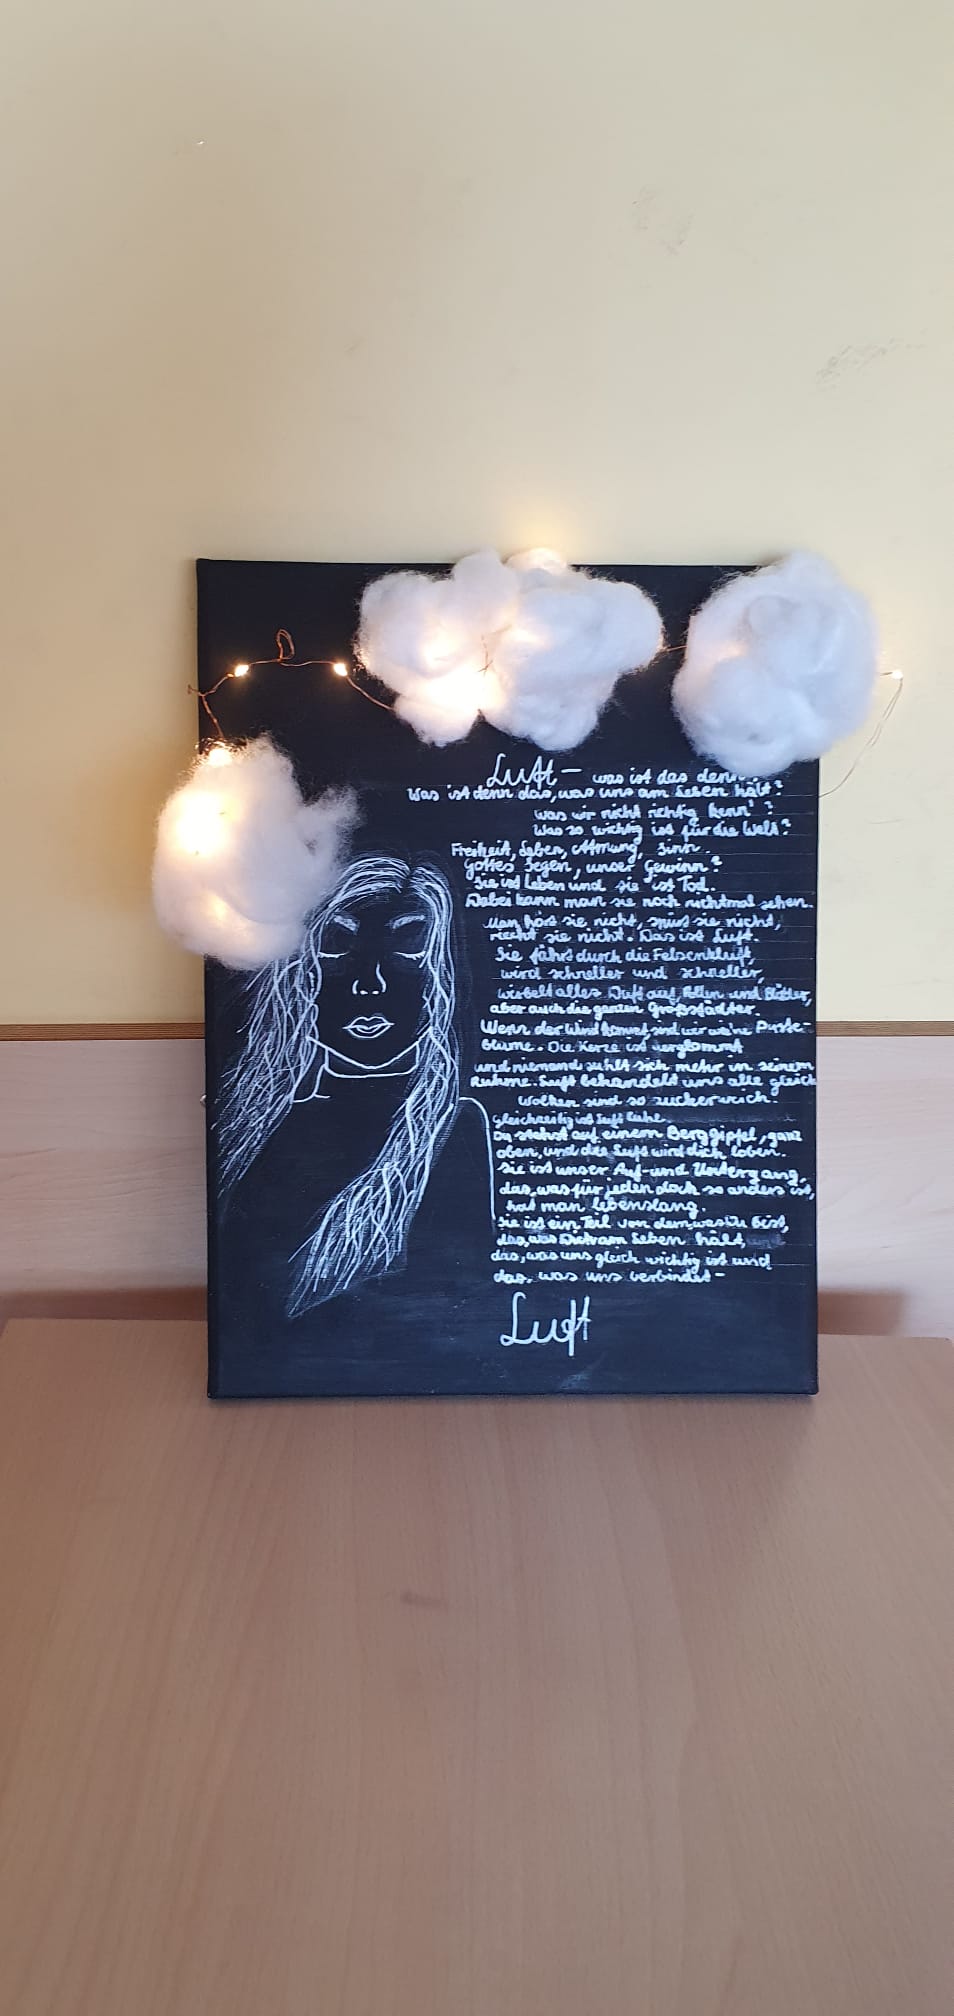 Luft - was ist das denn?
Was ist denn das, was uns am Leben hält?
Was wir nicht richtig kenn'?
Was so wichtig ist für die Welt?
Freiheit, Leben, Atmung, Sinn.
Gottes Segen, unser Gewinn?
Sie ist Leben und sie ist Tod.
Dabei kann man sie noch nichtmal sehen.
Man hört sie nicht, spürt sie nicht,
riecht sie nicht. Das ist Luft.
Sie fährt durch die Felsenkluft,
wird schneller und schneller,
wirbelt alles Duft auf, Pollen und Blätter,
aber auch die ganzen Großstädter.
Wenn der Wind kommt sind wir wie 'ne Puste-
blume. Die Kerze ist verglommt
und niemand suhlt sich mehr in seinem
Ruhme. Luft behandelt uns alle gleich
Wolken sind so zuckerweich.
gleichzeitig ist Luft Ruhe.
Du stehst auf einem Berggipfel, ganz
oben, und die Luft wird dich loben.
Sie ist unser Auf- und Untergang,
das, was für jeden doch so anders ist,
hat man lebenslang.
Sie ist ein Teil von dem, was Du bist,
das, was Dich am Leben hält,
das, was uns gleich wichtig ist und
das, was uns verbindet -
Luft